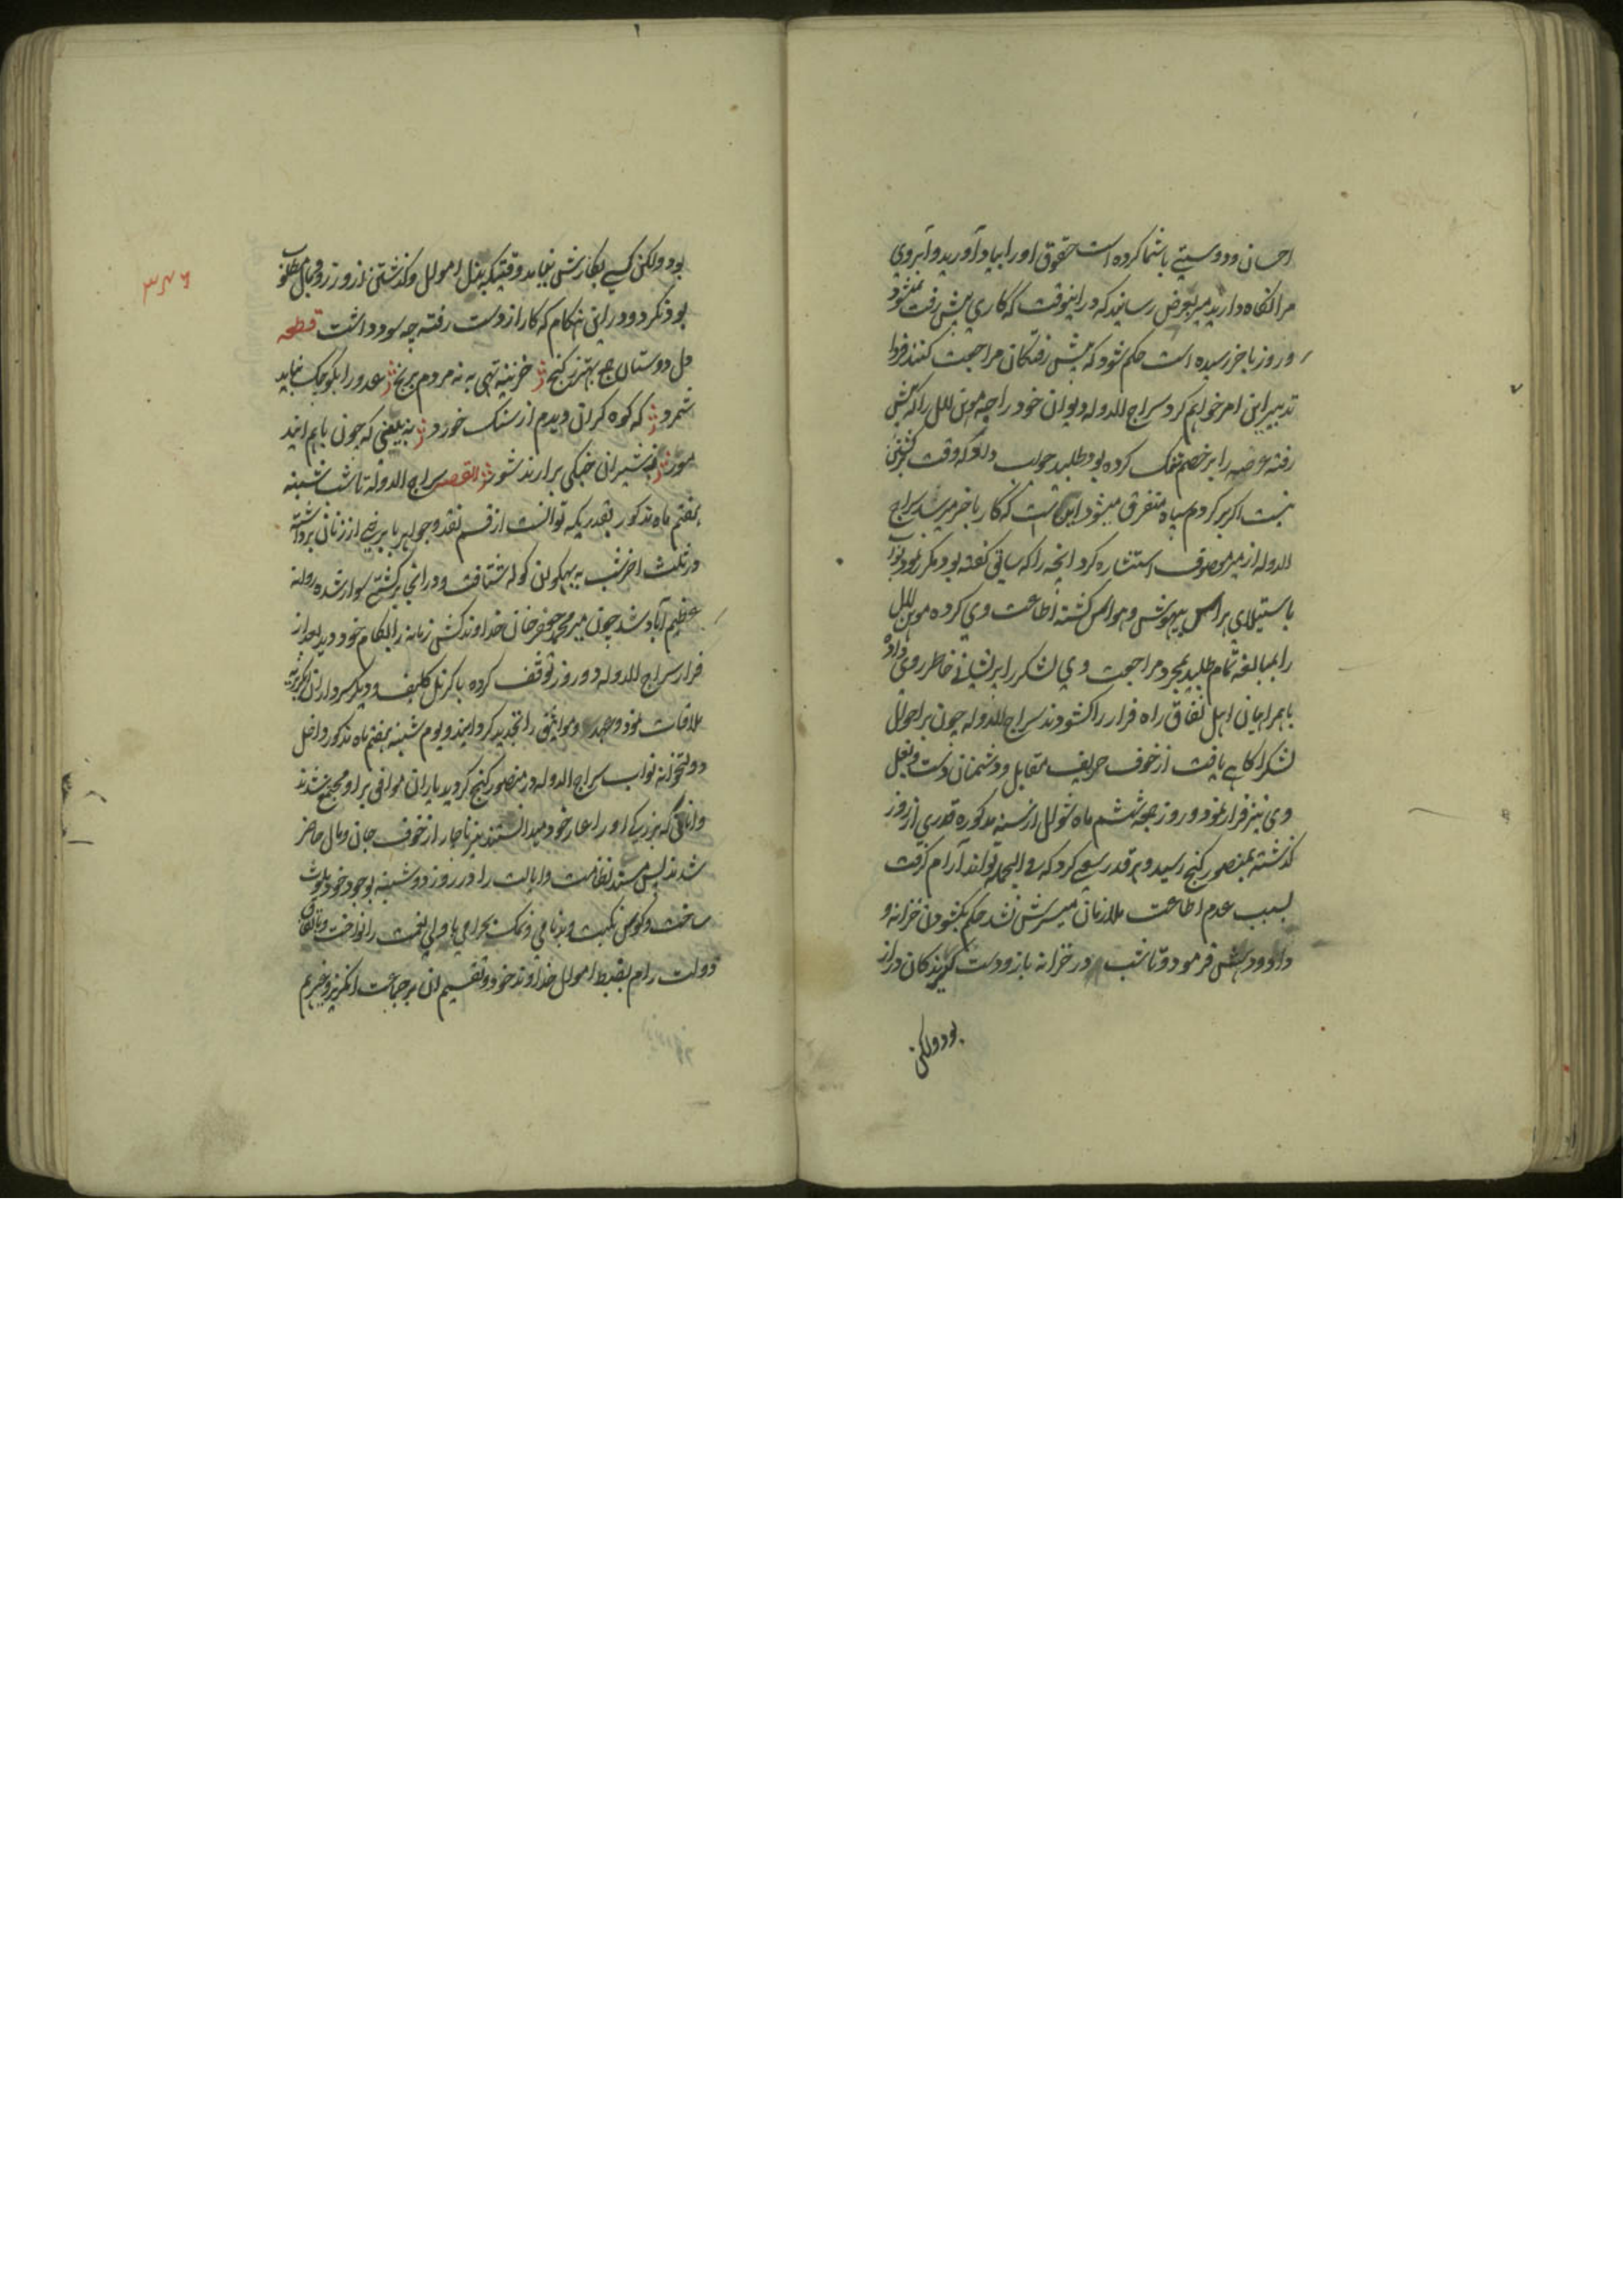 احسان و دوستیی باشما کرده است حقوق او را بیاد آورید و آبروی
مرا نگاه دارید میر بعرض رسانید که در اینوقت که کاری پیش رفت نمیشود
و روز باخر رسیده است حکم شود که پیش رفتگان مراجعت کنند فردا
تدبیر این امر خواهم کرد سراج الدوله دیوان خود راجه موهن لال را که پیش
رفته عرصه را بر خصم تنگ کرده بود طلبید جواب داد که وقت برگشتن
نیست اگر برگردم سپاه متفرق میشود این است که کار باخر میرسد سراج
الدوله از میر موصوف استشاره کرد انچه را که سابق گفته بود مکرر نمود نواب
باستیلای هراس بیهوش و هواس گشته اطاعت وی کرده موهن لال
را بمبالغه تمام طلبید بمجرد مراجعت وی لشکر را پریشانی خاطر روی داده
باهمراهیان اهل نفاق راه فرار را گشودند سراج الدوله چون بر احوال
لشکر اگاهی یافت از خوف حریف مقابل و دشمنان دست و بغل
وی نیز فرار نمود و روز جمعه ششم ماه شوال از سنه مذکوره قدری از روز
گذشته بمنصور گنج رسید و هر قدر سعی کرد که فی الجمله تواند آرام گرفت
بسبب عدم اطاعت ملازمان میسرش نشد حکم بگشودن خزانه و
داد و دهش فرمود و تا شب در خزانه باز و دست گیرندگان دراز
بود و لکن
۳۴۶
بود و لکن کسی بکارش نیامد وقتیکه بذل اموال و گذشتن از زر و مال مطلوب
بود نکرد و در این هنگام که کار از دست رفته چه سود داشت قطعه
دل دوستان جمع بهتر ز گنج خزینه تهی به نه مردم برنج عدو را بکوچک نباید
شمرد که کوه گران دیدم از سنگ خورد نه بینی که چون باهم ایند
مور ز شیران جنگی برارند شور القصه سراج الدوله تا شب شنبه
هفتم ماه مذکور بقدریکه توانست از قسم نقد و جواهر با برخی از زنان برداشته
در ثلث اخر شب به بهکوان گوله شتافت و در انجا بر کشتی سوار شده روانه
عظیم آباد شد چون میر محمد جعفر خان خداوند کشی زمانه را بکام خود دید بعد از
فرار سراج الدوله دو روز توقف کرده با کرنل کلیف و دیگر سرداران انگریزیه
ملاقات نمود و عهد و مواثیق را تجدید گردانید و یوم شنبه هفتم ماه مذکور داخل
دولتخانه نواب سراج الدوله در منصور گنج گردید یاران موافق بر او مجتمع شدند
و انانی که بزرگی او را عار خود میدانستند نیز ناچار از خوف جان و مال حاضر
شدند پس مسند نظامت و ایالت را در روز دوشنبه بوجود خود ملوث
ساخت و کوس نکبت و بدنامی و نمک بحرامی با ولی نعمت را نواخت و باتفاق
دولت رام بضبط اموال خداوند خود و تقسیم ان بر جماعت انگریز و غیرهم